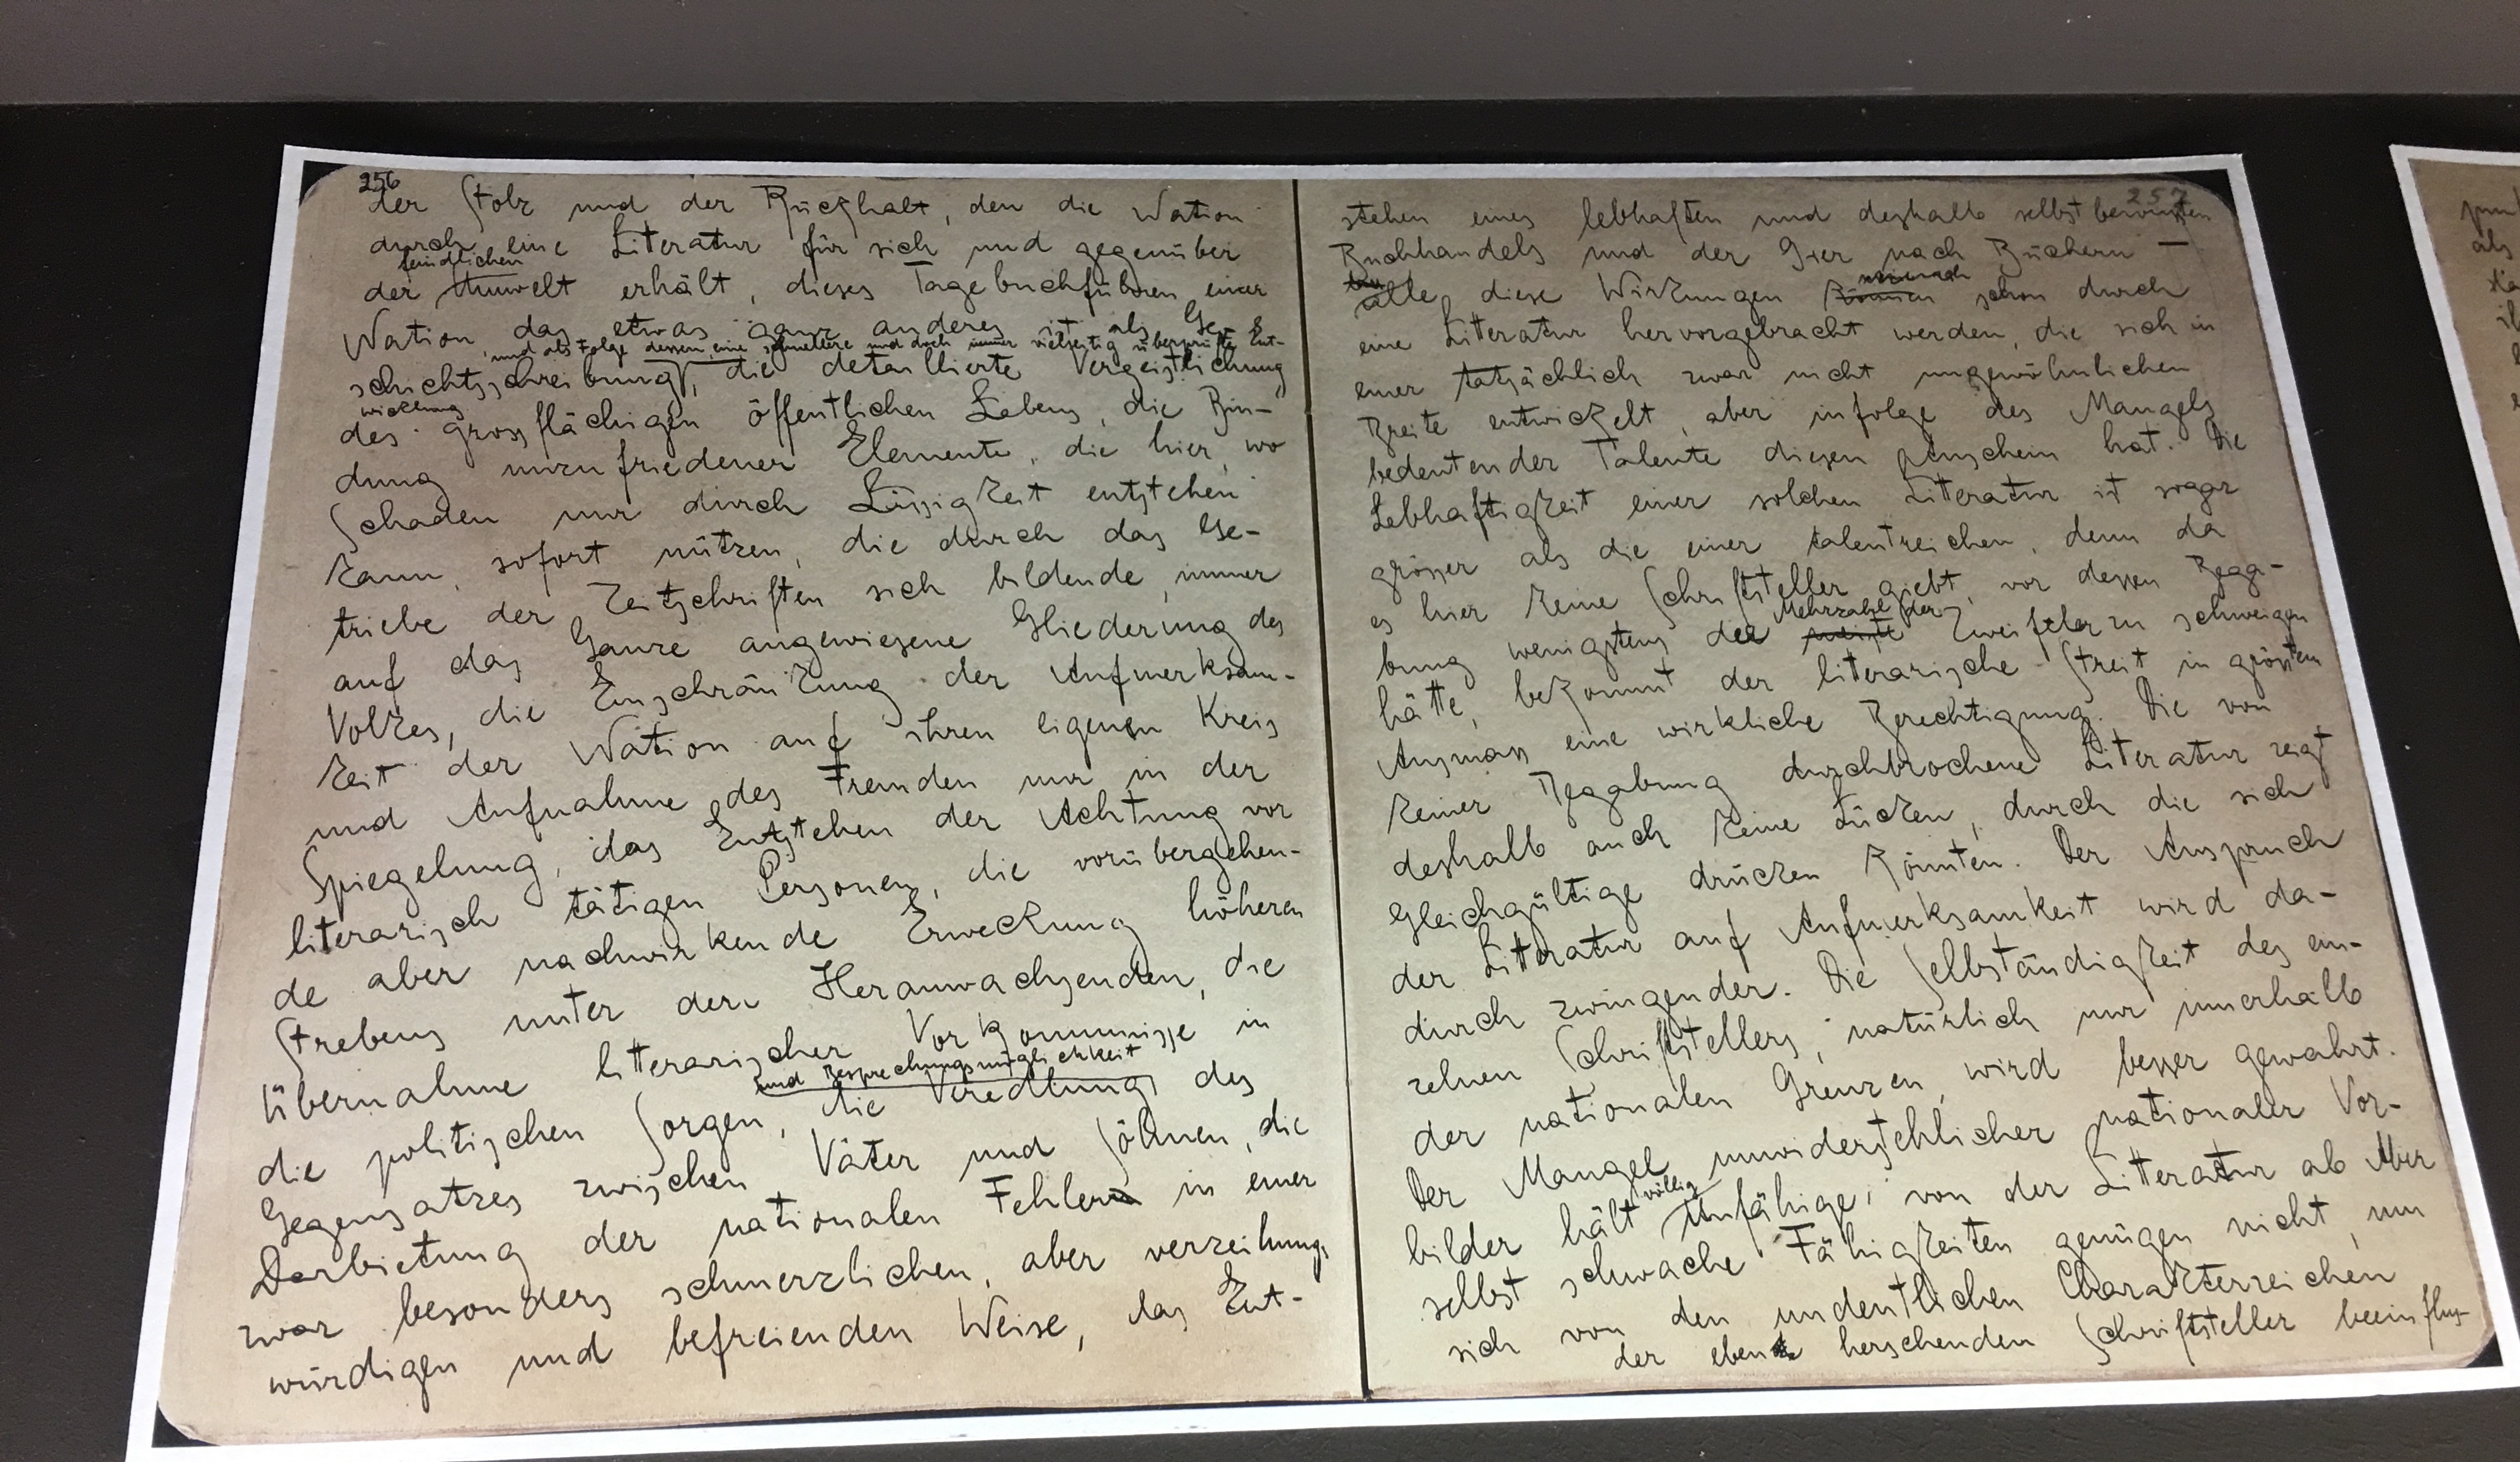 256
der Stolz und der Rückhalt, den die Nation
durch eine Literatur für sich und gegenüber
feindlichen
der Umwelt erhält, dieses Tagebuchführen einer
Nation, das etwas ganz anderes ist als Ge-
und als Folge dessen eine schnellere und doch immer vielseitig überprüfte Ent-
schichtsschreibung, die detaillierte Vergeistlichung
wicklung
des grossflächigen öffentlichen Lebens, die Bin-
dung unzufriedener Elemente, die hier, wo
Schaden nur durch Lässigkeit entstehen
kann, sofort nützen, die durch das Ge-
triebe der Zeitschriften sich bildende, immer
auf das Ganze angewiesene Gliederung des
Volkes, die Einschränkung der Aufmerksam-
keit der Nation auf ihren eigenen Kreis
und Aufnahme des Fremden nur in der
Spiegelung, das Entstehen der Achtung vor
literarisch tätigen Personen, die vorübergehen-
de aber nachwirkende Erweckung höheren
Strebens unter den Heranwachsenden, die
Übernahme literarischer Vorkommnisse in
die politischen Sorgen, die Veredlung des
und Besprechungsmöglichkeit
Gegensatzes zwischen Väter und Söhnen, die
Darbietung der nationalen Fehler in einer
zwar besonders schmerzlichen, aber verzeihungs
würdigen und befreienden Weise, das Ent-
257
stehen eines lebhaften und deshalb selbstbewussten
Buchhandels und der Gier nach Büchern —
alle diese Wirkungen können schon durch
eine Literatur hervorgebracht werden, die sich in
einer tatsächlich zwar nicht ungewöhnlichen
Breite entwickelt, aber infolge des Mangels
bedeutender Talente diesen Anschein hat. Die
Lebhaftigkeit einer solchen Literatur ist sogar
grösser als die einer talentreichen, denn da
es hier keine Schriftsteller giebt, vor dessen Bega-
Mehrzahl der
bung wenigstens die meiste Zweifler zu schweigen
hätte, bekommt der literarische Streit in grösstem
Ausmass eine wirkliche Berechtigung. Die von
keiner Begabung durchbrochene Literatur zeigt
deshalb auch keine Lücken, durch die sich
Gleichgültige drücken könnten. Der Anspruch
der Litteratur auf Aufmerksamkeit wird da-
durch zwingender. Die Selbständigkeit des ein-
zelnen Schriftstellers, natürlich nur innerhalb
der nationalen Grenzen, wird besser gewahrt.
Der Mangel unwiderstehlicher nationaler Vor-
völlig
bilder hält Unfähige von der Litteratur ab Aber
selbst schwache Fähigkeiten genügen nicht, um
sich von den undeutlichen Charakterzeichen
der eben herschenden Schriftsteller beeinflus-